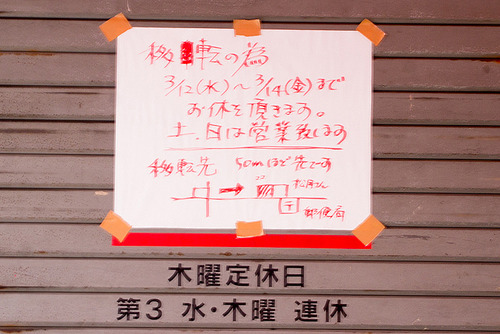 移転の為
3/12(水)～3/14(金)まで
お休を頂きます。
土、日は営業致します
移転先 50mほど先です
ココ
〒 郵便局
木曜定休日
第3 水・木曜 連休